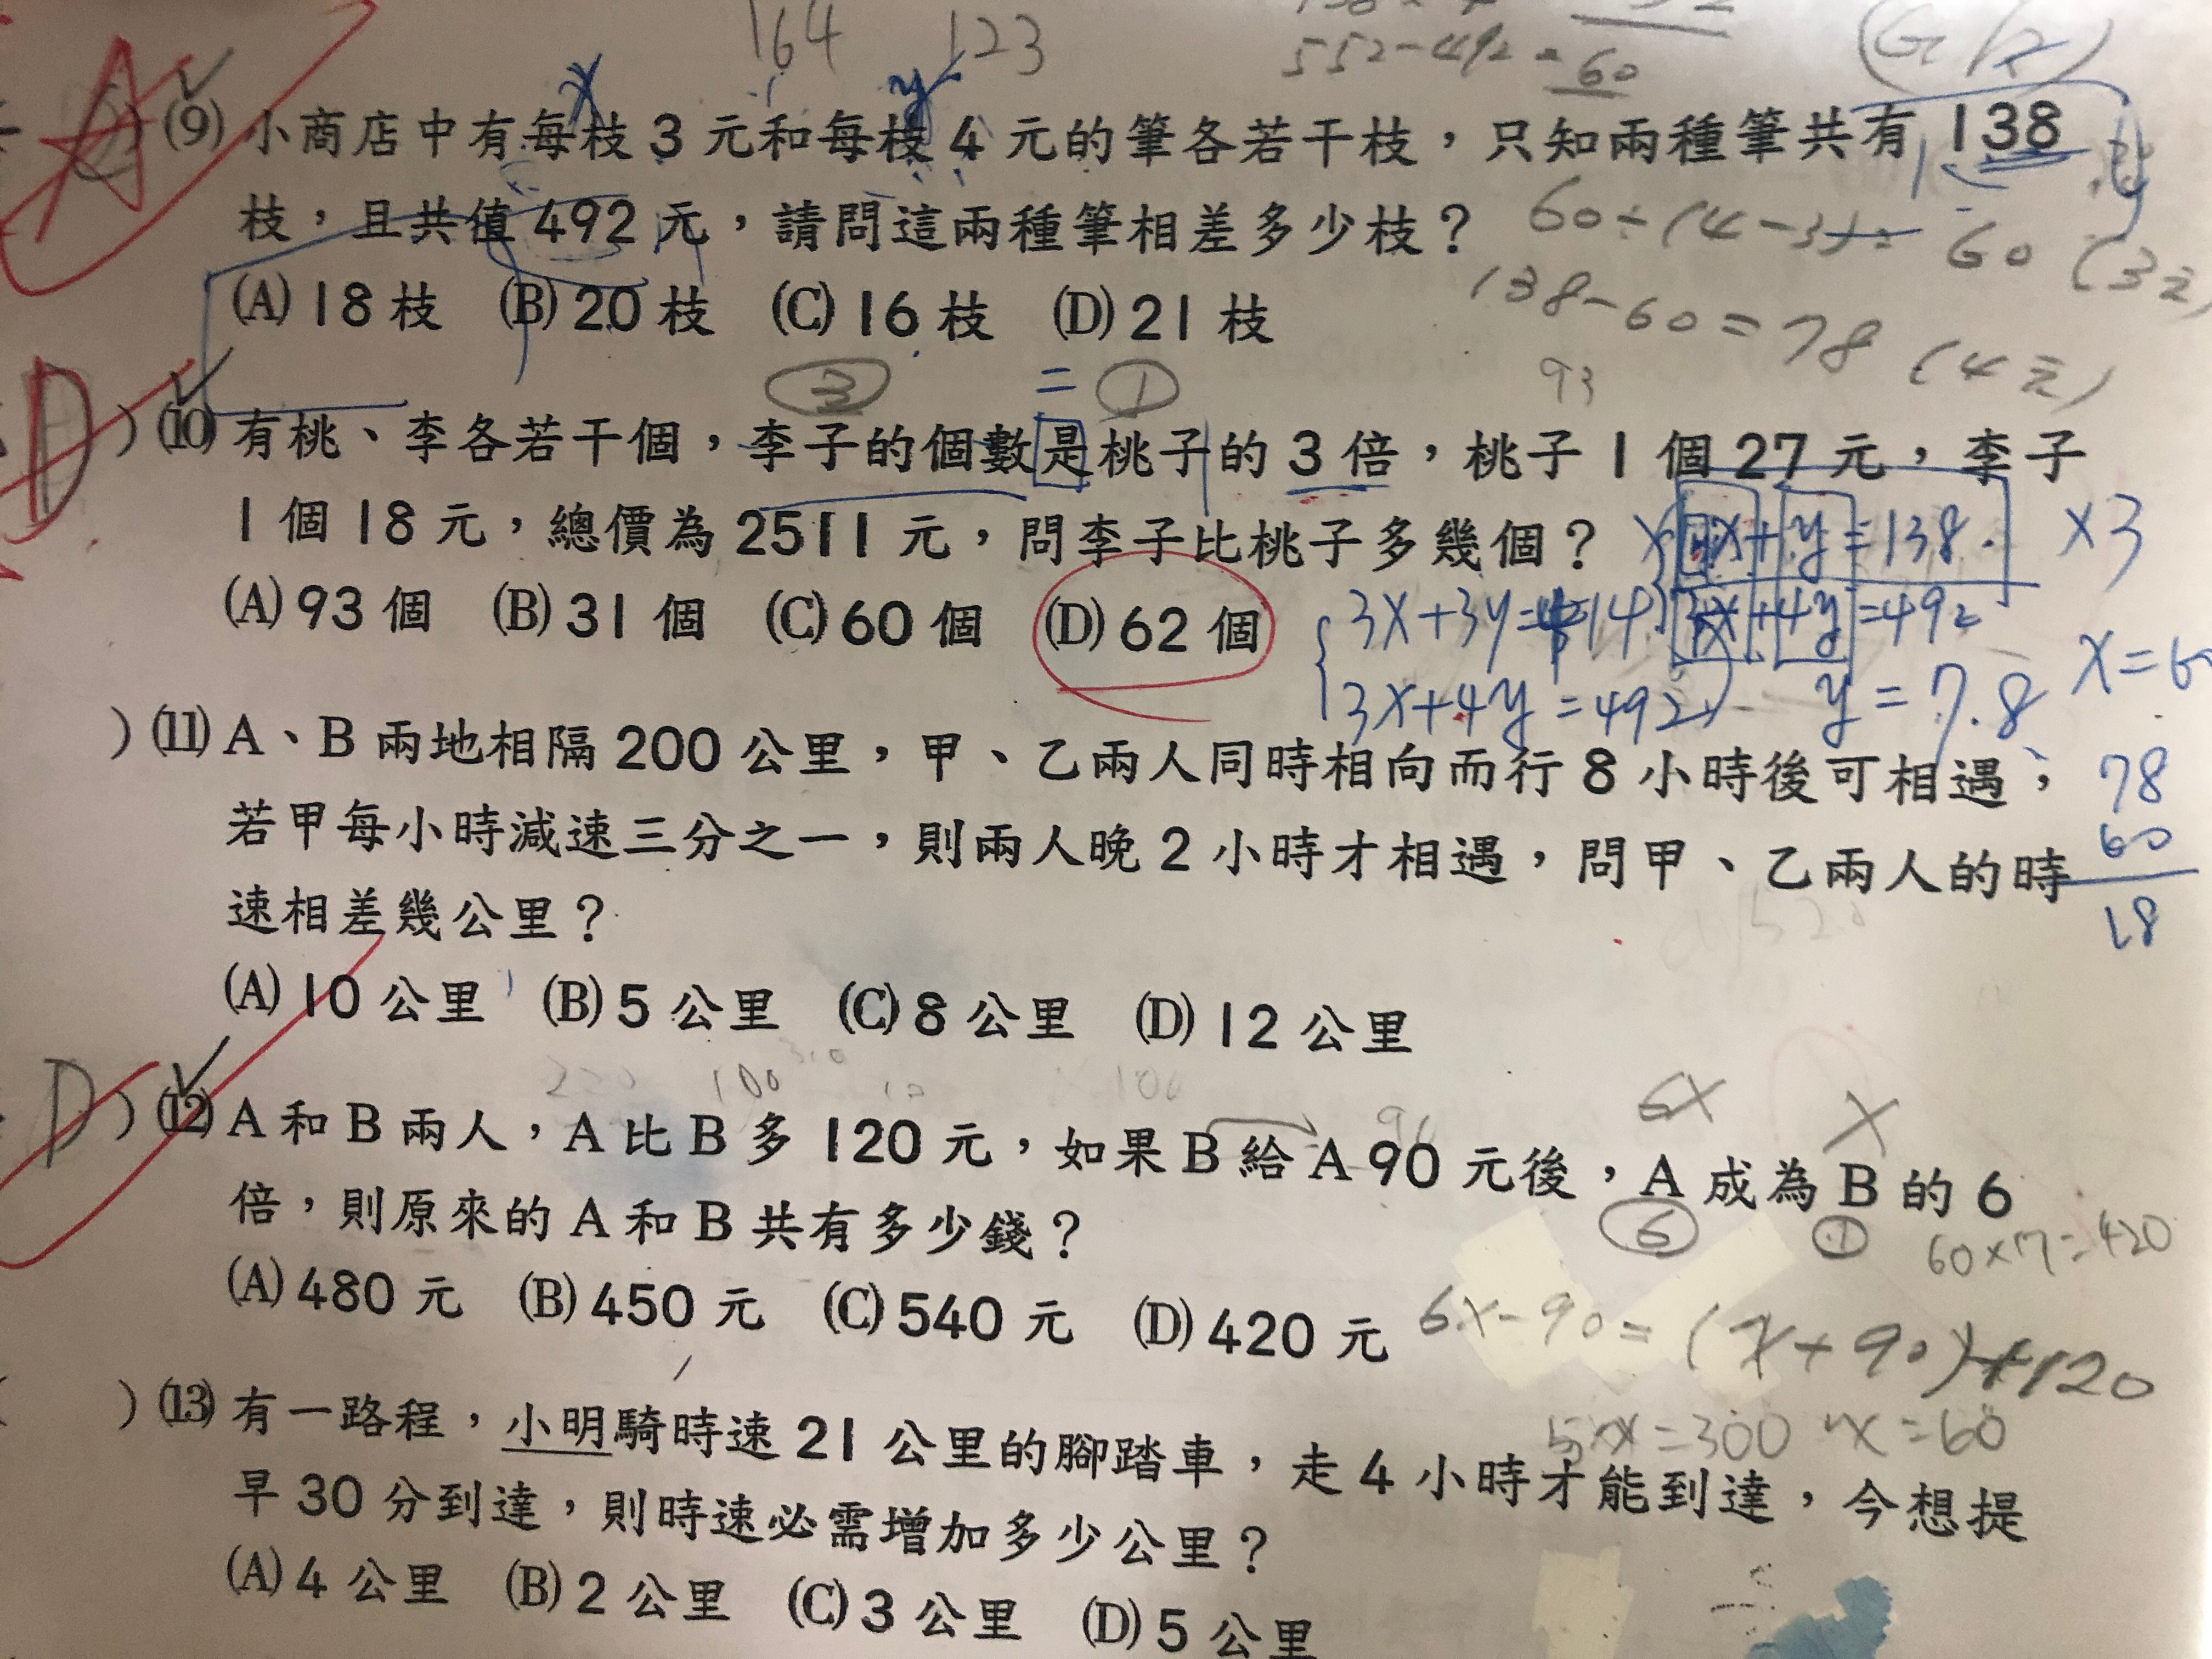 164 123
552-492=60
A
x y
(9) 小商店中有每枝 3 元和每枝 4 元的筆各若干枝，只知兩種筆共有 138
枝，且共值 492 元，請問這兩種筆相差多少枝？
60÷(4-3)=60
(A) 18 枝 (B) 20 枝 (C) 16 枝 (D) 21 枝
138-60=78 (4元)
3 = 1 93
D
) (10) 有桃、李各若干個，李子的個數是桃子的 3 倍，桃子 1 個 27 元，李子
1 個 18 元，總價為 2511 元，問李子比桃子多幾個？
x+y=138 ×3
(A) 93 個 (B) 31 個 (C) 60 個 (D) 62 個
3x+4y=492
3x+4y=492 y=7.8
) (11) A、B 兩地相隔 200 公里，甲、乙兩人同時相向而行 8 小時後可相遇；
78
若甲每小時減速三分之一，則兩人晚 2 小時才相遇，問甲、乙兩人的時
60
速相差幾公里？
18
(A) 10 公里 (B) 5 公里 (C) 8 公里 (D) 12 公里
100
6x x
D
) (12) A 和 B 兩人，A 比 B 多 120 元，如果 B 給 A 90 元後，A 成為 B 的 6
倍，則原來的 A 和 B 共有多少錢？
6 1 60×7=420
(A) 480 元 (B) 450 元 (C) 540 元 (D) 420 元
6x-90=(x+90)+120
5x=300 x=60
) (13) 有一路程，小明騎時速 21 公里的腳踏車，走 4 小時才能到達，今想提
早 30 分到達，則時速必需增加多少公里？
(A) 4 公里 (B) 2 公里 (C) 3 公里 (D) 5 公里